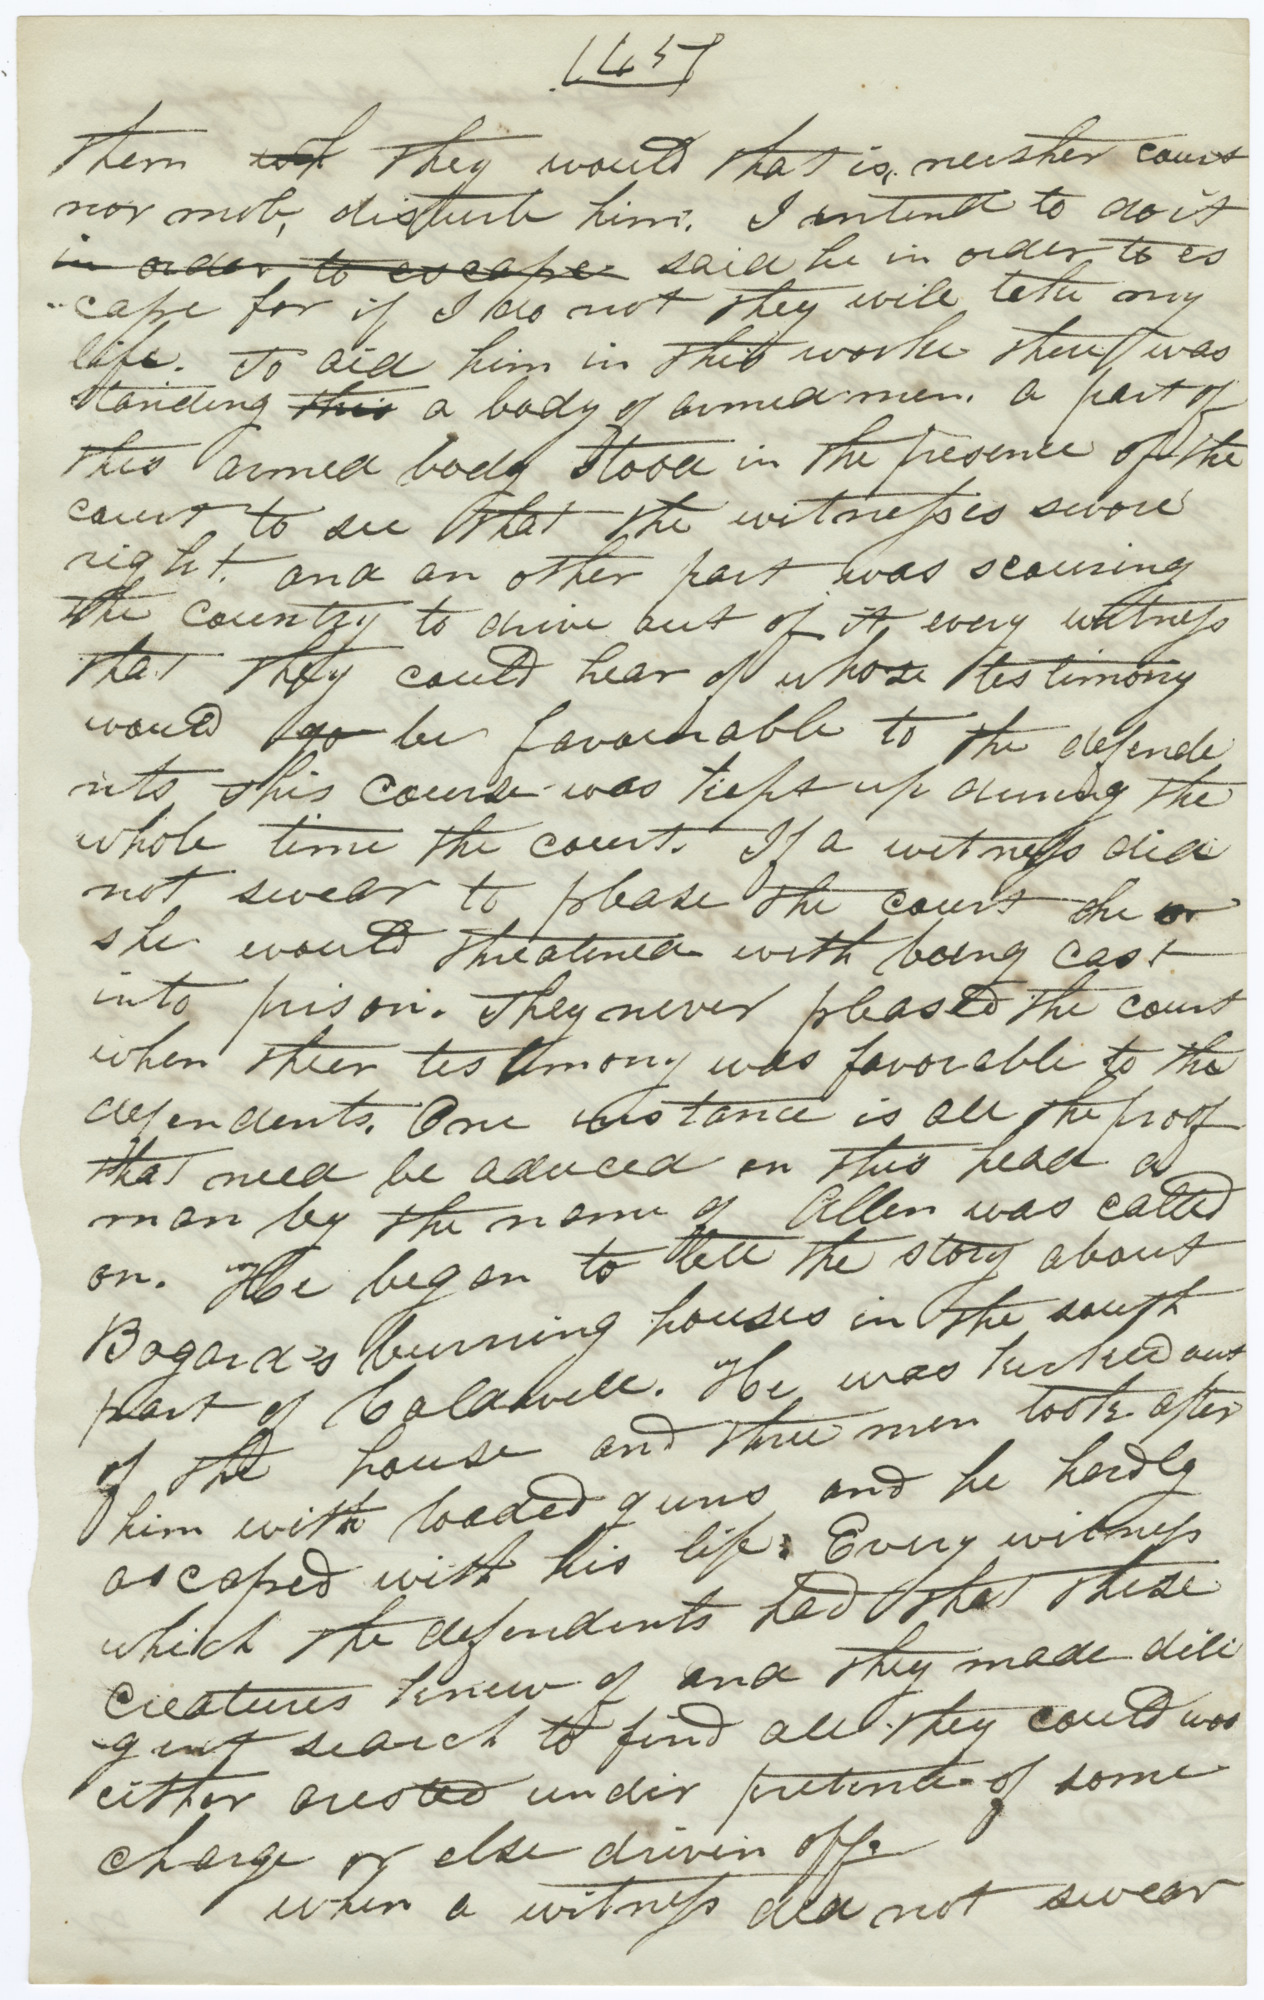 (45)
them not they would that is, neither court
nor mob, disturb him. I intend to do it
in order to escape said he in order to es
-cape for if I do not they will take my
life. To aid him in this worke there was
standing this a body of armed men. a part of
this armed body stood in the presence of the
court to see that the witnesses swore
right. and an other part was scouring
the country to drive out of it every witness
that they could hear of whose testimony
would go be favourable to the defende
nts this course was kept up during the
whole time the court. If a witness did
not swear to please the court he or
she would threatened with being cast
into prison. They never pleased the court
when their testimony was favorable to the
defendents. One instance is all the proof
that need be aduced on this head a
man by the name of Allen was called
on. He began to tell the story about
Bogard's burning houses in the south
part of Caldwell. He was kicked out
of the house and three men took after
him with loaded guns and he hardly
ascaped with his life. Every witness
which the defendents had that these
creatures knew of and they made dili
gent search to find all they could was
either arested under pretence of some
charge or else driven off.
when a witness did not swear